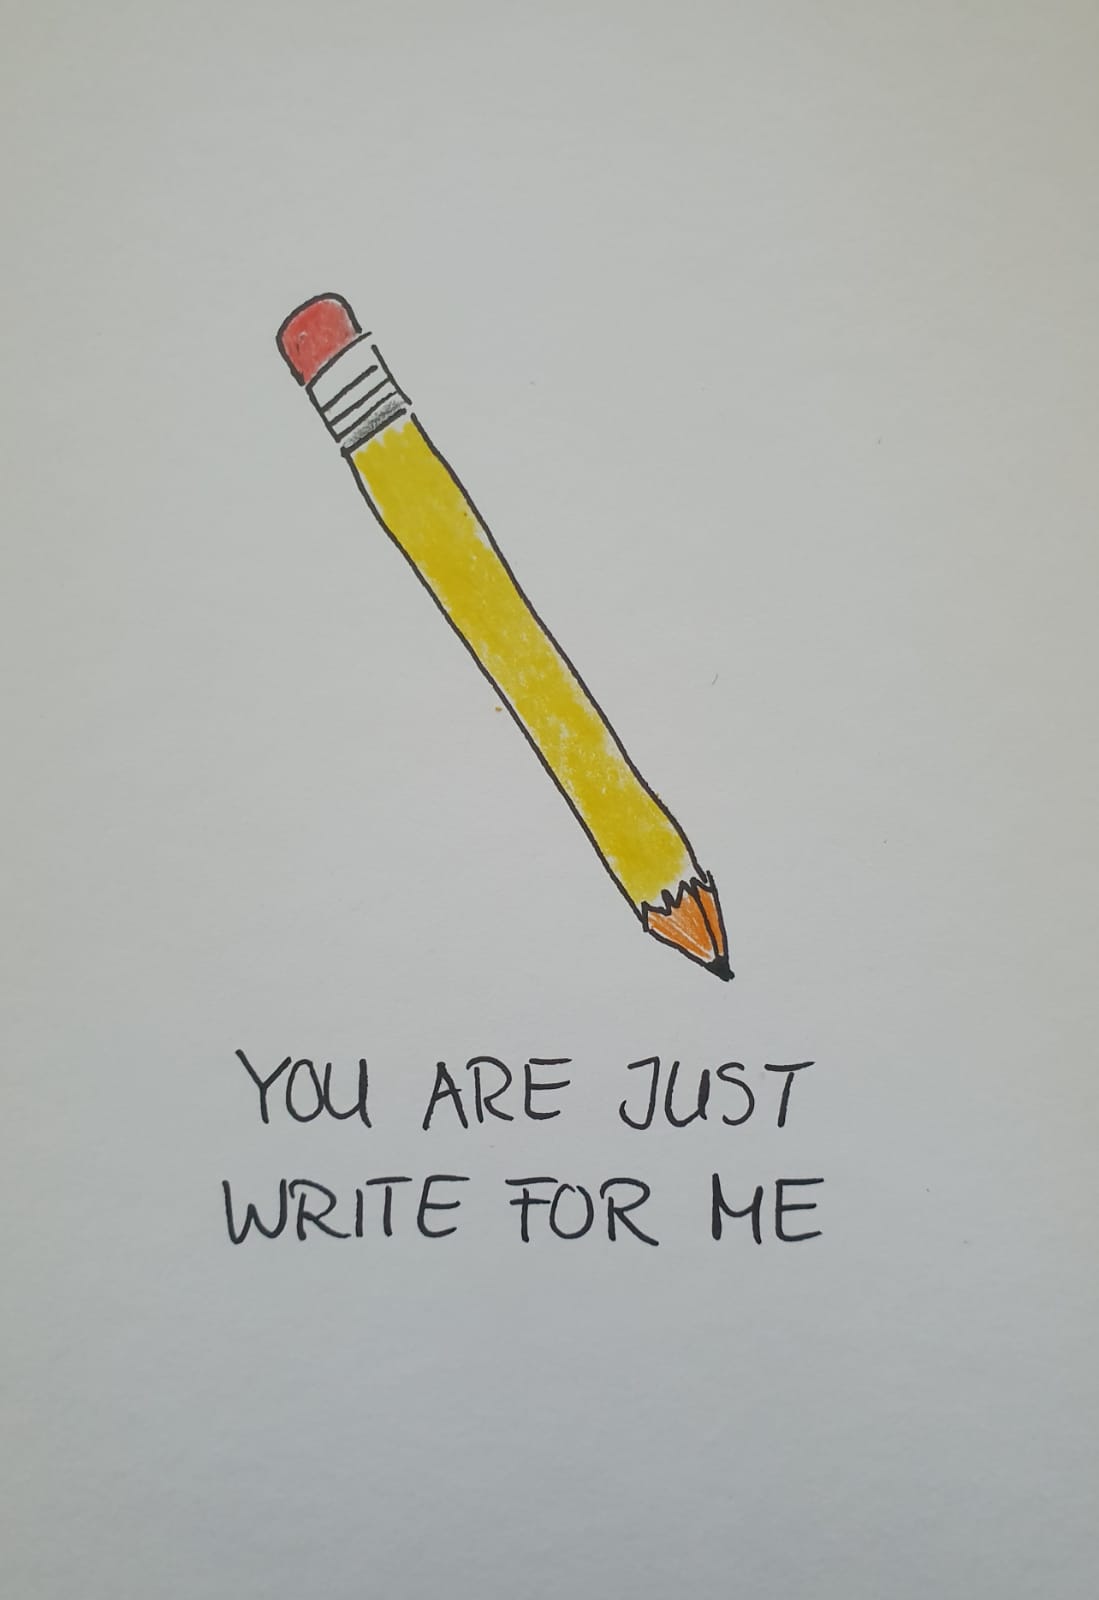 YOU ARE JUST
WRITE FOR ME